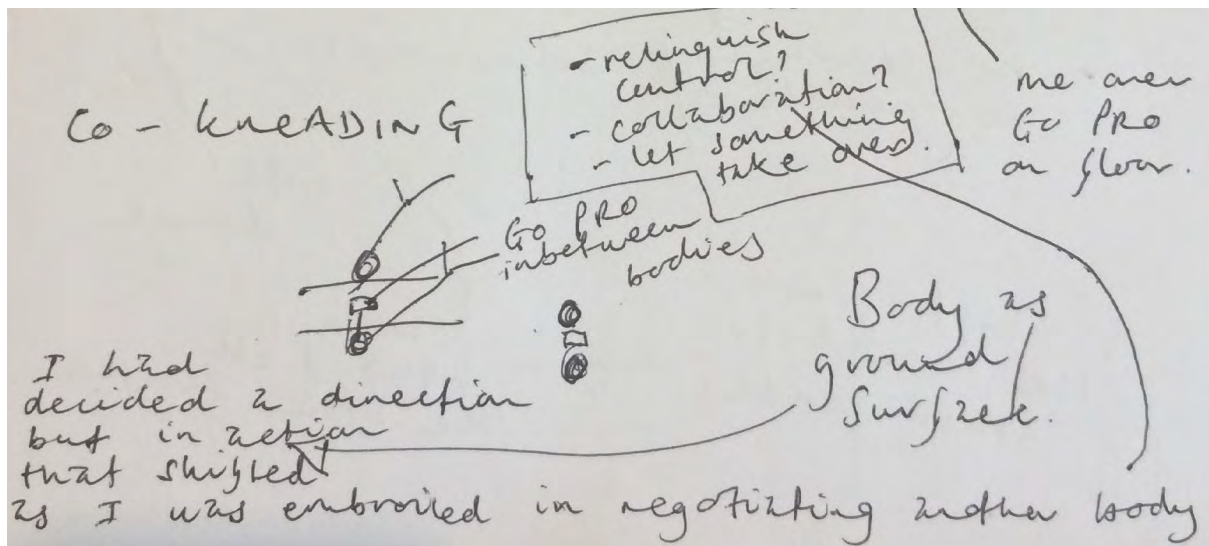 Co-kneADING
- relinquish
control?
- collaboration?
- let something
take over.
me over
GO PRO
on floor.
GO PRO
inbetween
bodies
Body as
ground
surface.
I had
decided a direction
but in action
that shifted
as I was embroiled in negotiating another body